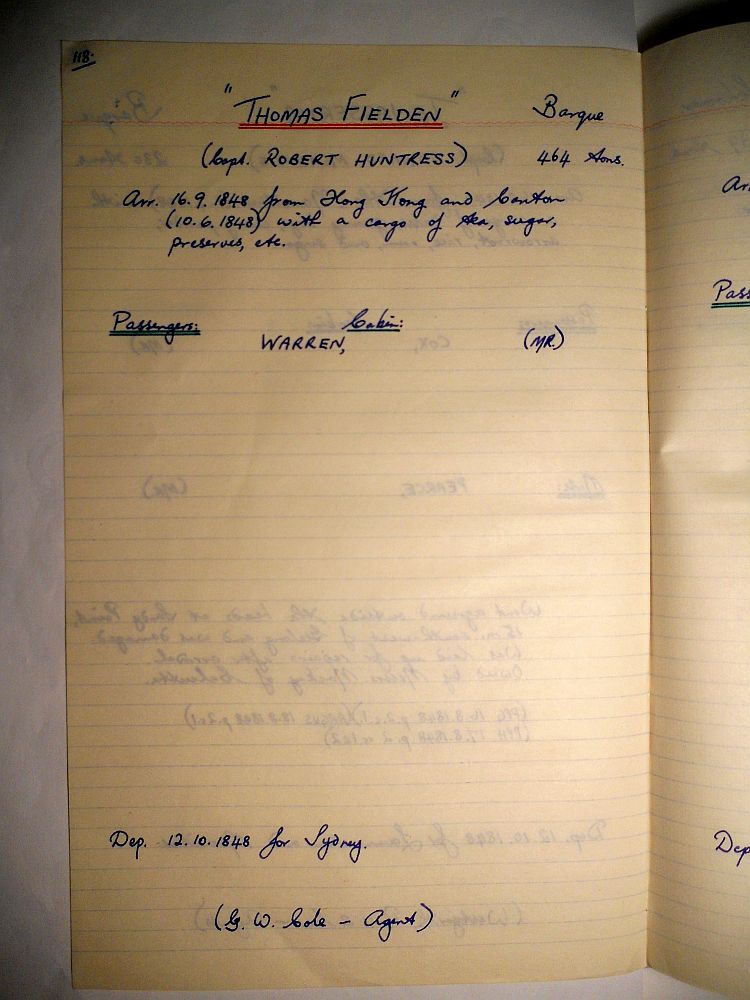 118.
"THOMAS FIELDEN" Barque
(Capt. ROBERT HUNTRESS) 464 tons.
Arr. 16.9.1848 from Hong Kong and Canton
(10.6.1848) with a cargo of tea, sugar,
preserves, etc.
Passengers: Cabin:
WARREN, (MR.)
Dep. 12.10.1848 for Sydney.
(G. W. Cole - Agent)
Ar
Pass
Dep